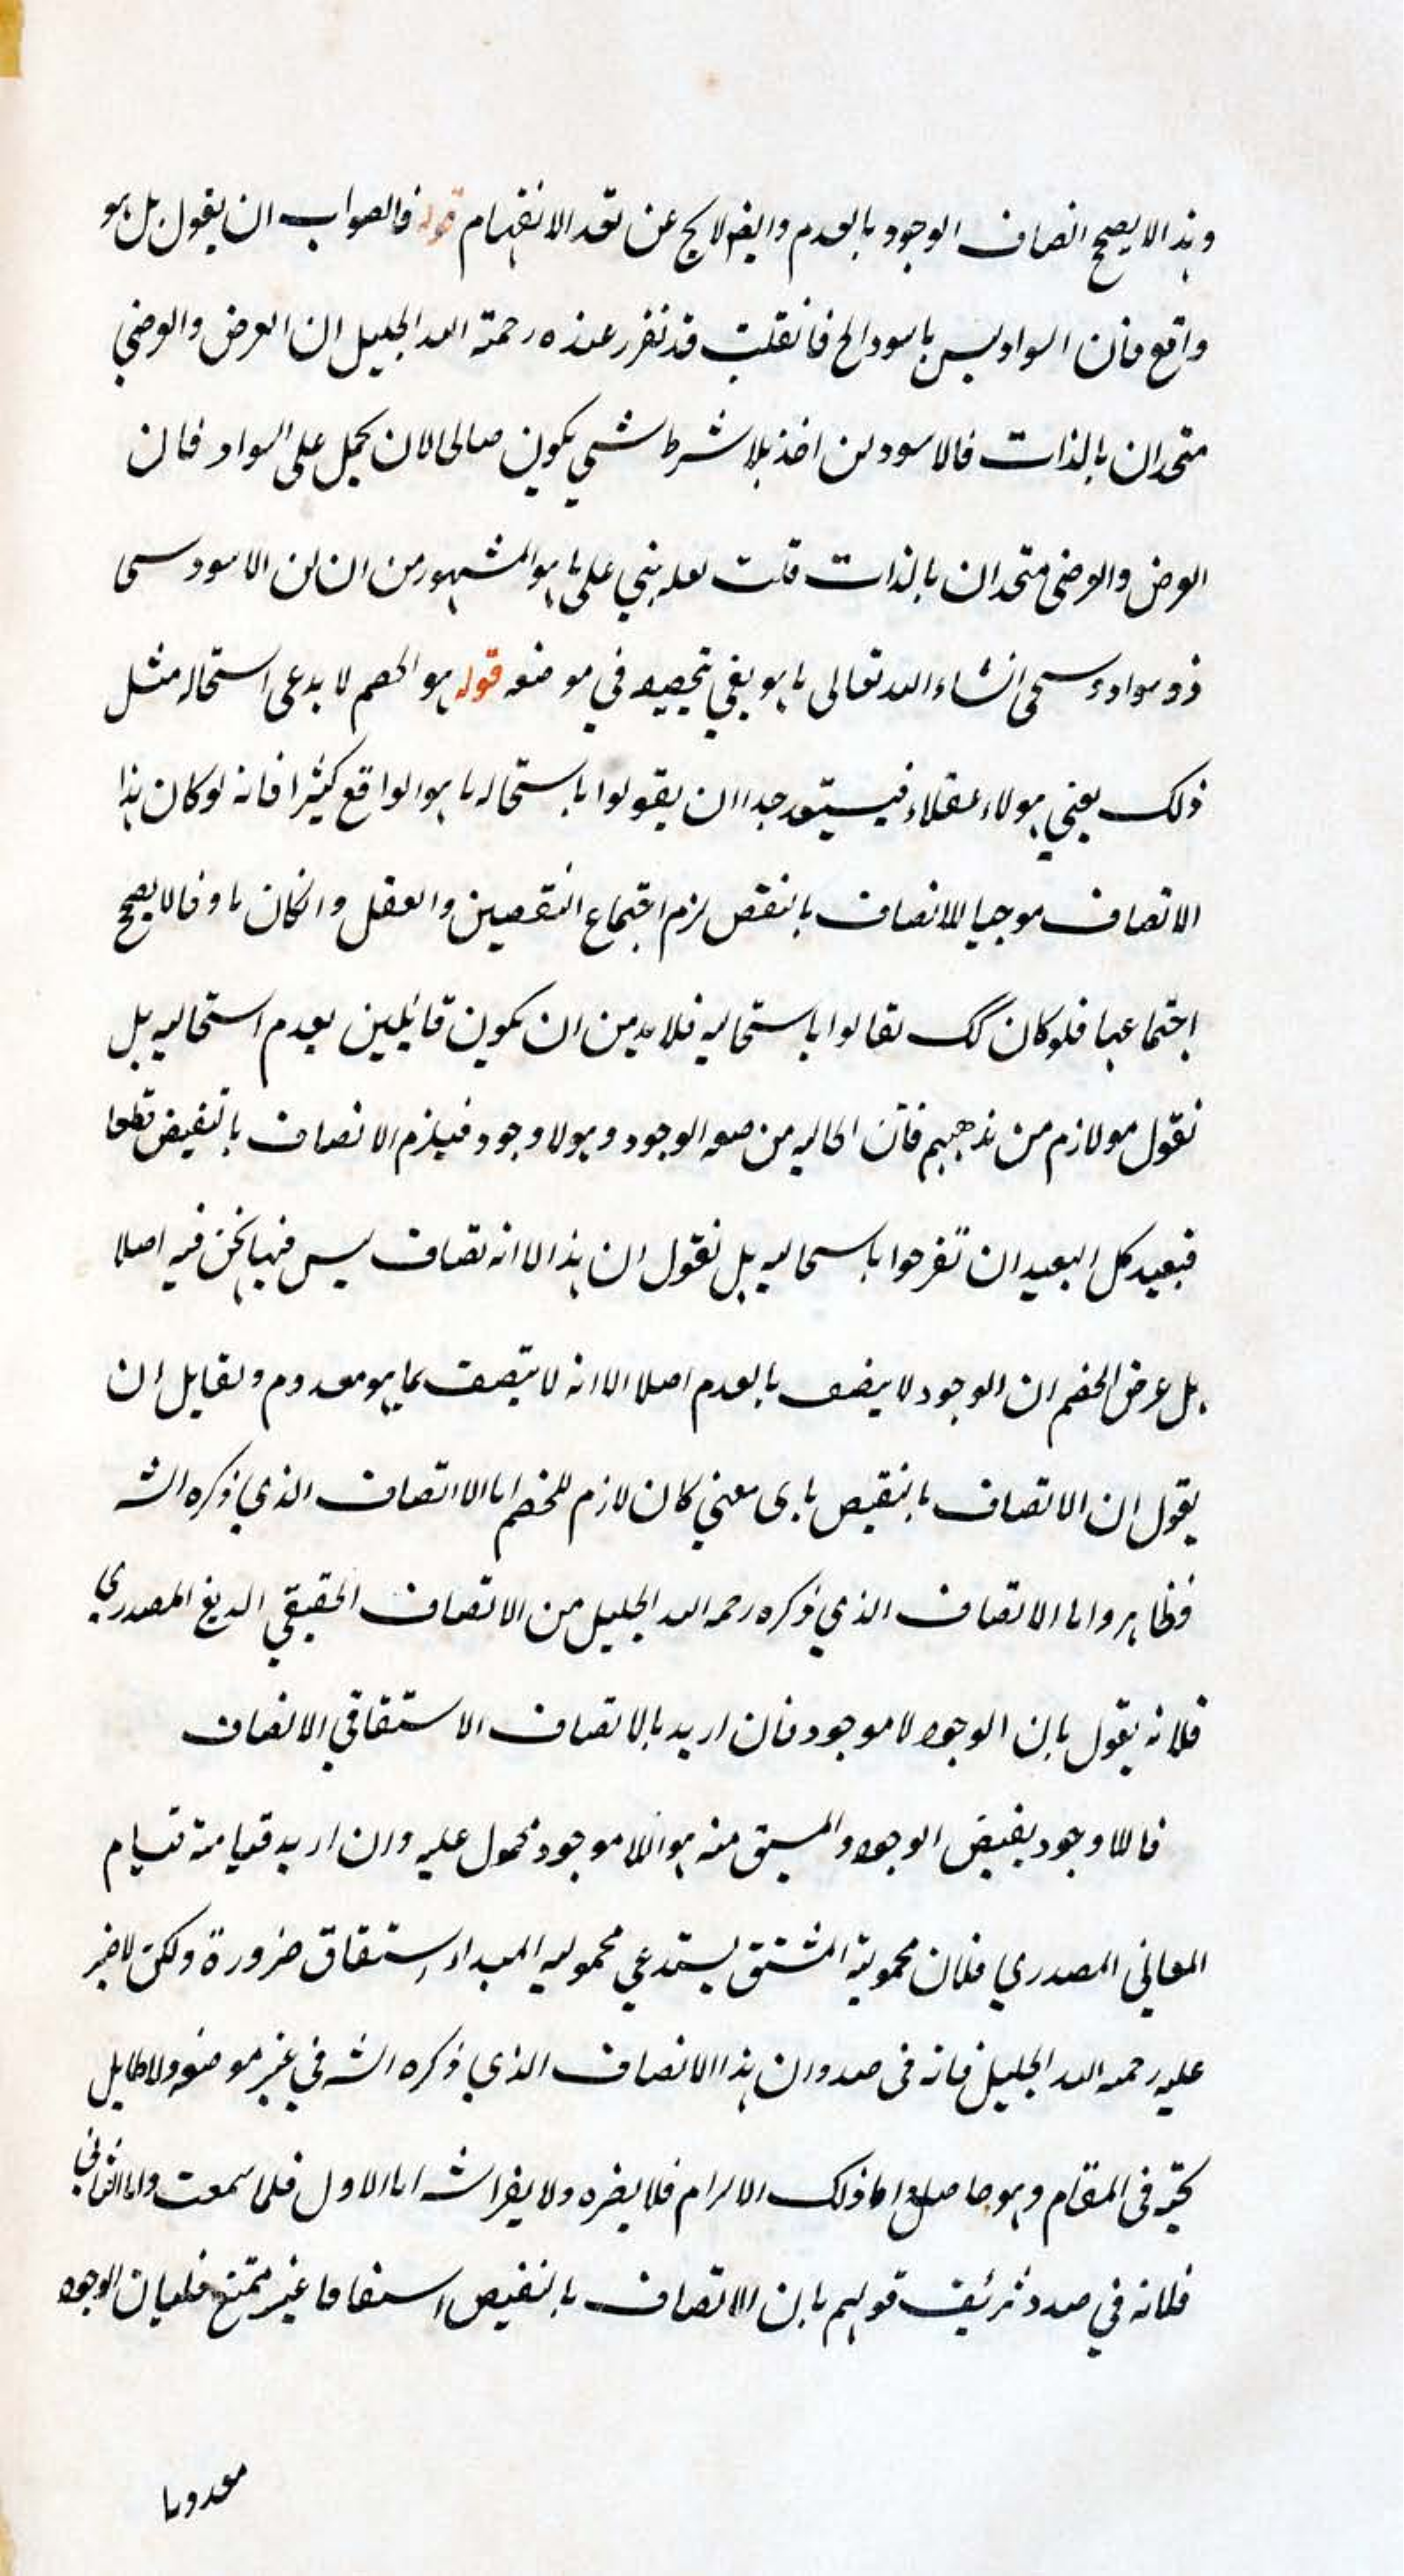 وهذا لا يصح اتصاف الوجود بالعدم وايضا لا يخ عن بعد الانفهام قوله فالصواب ان يقول بل هو
واقع فان السواد ليس باسود الخ فانقلت قد تقرر عنده رحمة الله الجليل ان العرض والعرضي
متحدان بالذات فالاسود لن اخذ بلا شرط شي يكون صالحا لان يحمل على السواد فان
العرض والعرضي متحدان بالذات قلت لعله بني على ما هو المشهور من ان الاسود
ذو سواد وسيجي انشاء الله تعالى ما هو يفي بتحصيله في موضعه قوله هو الخصم لا يدعى استحالة مثل
ذلك يعني هولاء عقلاء فيستبعد جدا ان يقولوا باستحالة ما هو الواقع كثيرا فانه لو كان هذا
الاتصاف موجبا للاتصاف بالنقيض لزم اجتماع النقيضين والعقل وانكان ما وفا لا يصح
اجتماعها فلو كان كك لقالوا باستحاليه فلا بد من ان يكون قائلين بعدم استحاليه بل
نقول هو لازم من مذهبهم فان الحاليه من صفة الوجود وهو لا وجود فيلزم الاتصاف بالنقيض قطعا
فبعيد كل البعيد ان تفرحوا باستحاليه بل نقول ان هذا الا انه تصاف ليس فيما نحن فيه اصلا
بل عرض الخصم ان الوجود لا يتصف بالعدم اصلا الا انه لا يتصف بما هو معدوم ولقايل ان
يقول ان الاتصاف بالنقيض باى معني كان لازم للخصم اما الاتصاف الذي ذكره الشـ
فظاهر واما الاتصاف الذي ذكره رحمه الله الجليل من الاتصاف الحقيقي المصدري
فلانه يقول بان الوجود لا موجود فان اريد بالاتصاف الاشتقاقي الاتصاف
فاللاوجود نقيض الوجود والمشتق منه هو اللاموجود محمول عليه وان اريد قيامه قيام
المعاني المصدري فلان محمولية المشتق يستدعي محموليه المبداء اشتقاق ضرورة ولكن لا ضير
عليه رحمه الله الجليل فانه فى صدد ان هذا الاتصاف الذي ذكره الشـ في غير موضعه ولا طايل
تحته فى المقام وهو حاصل واما ذلك الالزام فلا يضره ولا يضر الشـ اما الاول فلما سمعت واما الثاني
فلانه في صدد تزئيف قولهم بان الاتصاف بالنقيض اشتقاقا غير ممتنع فلعيان الوجود
معدوما